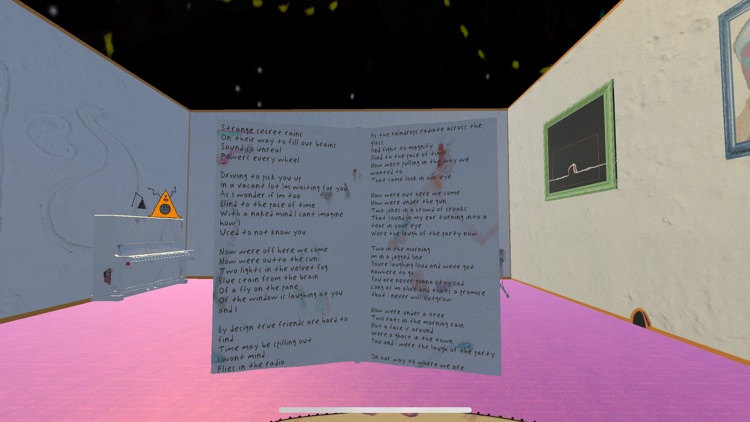 Strange secret rains
On their way to fill our brains
Sound so unreal
Powers every wheel
Driving to pick you up
In a vacant lot im waiting for you
As I wonder if im too
Blind to the pace of time
With a naked mind I cant imagine
how I
Used to not know you
Now were off here we come
Now were outta the sun
Two lights in the velvet fog
Blue stain from the brain
Of a fly on the pane
Of the window is laughing at you
and I
By design true friends are hard to
find
Time may be spilling out
I wont mind
Flies in the radio
As the raindrops radiate across the
glass
And fight to magnify
Blind to the pace of time
Now were pulling in the way we
wanted to
That same look in our eye
Now were out here we come
Now were under the gun
Two jokes in a crowd of croaks
That sound in my ear turning into a
tear in your eye
Were the laugh of the party now
Two in the morning
im in a jagged line
Youre laughing loud and weve got
nowhere to go
You are never gonna stay sad
Long as im alive and thats a promise
that i never will outgrow
Now were under a tree
Two rats in the morning rain
Not a face is around
Were a ghost in the town
You and i were the laugh of the party
On our way to where we are